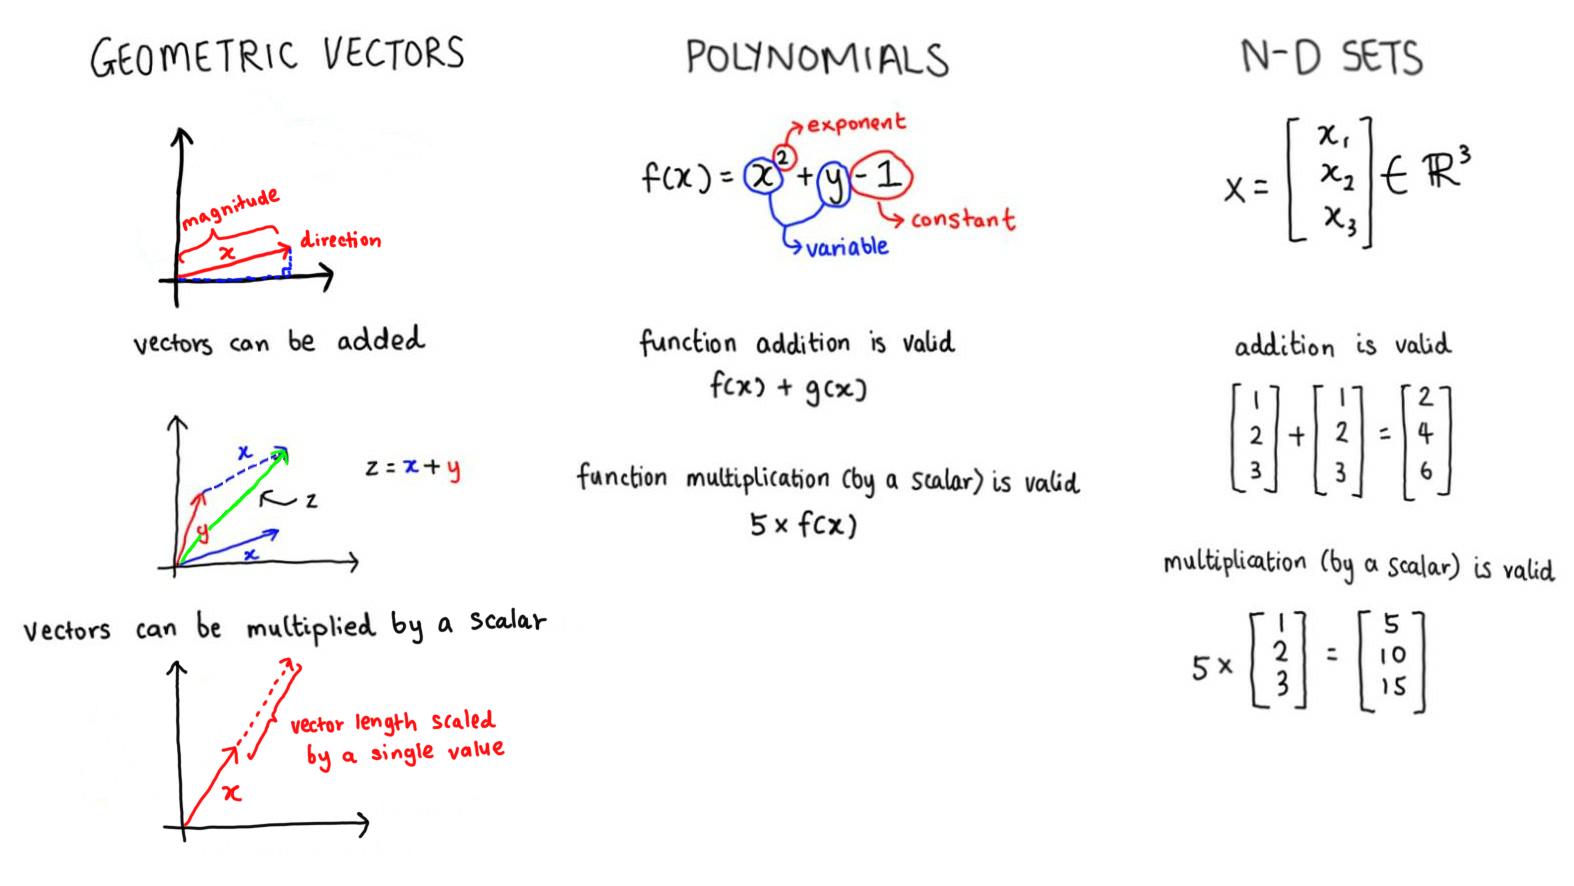 GEOMETRIC VECTORS
magnitude
x
direction
vectors can be added
x
z = x + y
z
y
x
vectors can be multiplied by a scalar
vector length scaled
by a single value
x
POLYNOMIALS
exponent
f(x) = x² + y - 1
constant
variable
function addition is valid
f(x) + g(x)
function multiplication (by a scalar) is valid
5 × f(x)
N-D SETS
x = [x₁ x₂ x₃] ∈ ℝ³
addition is valid
[1 2 3] + [1 2 3] = [2 4 6]
multiplication (by a scalar) is valid
5 × [1 2 3] = [5 10 15]